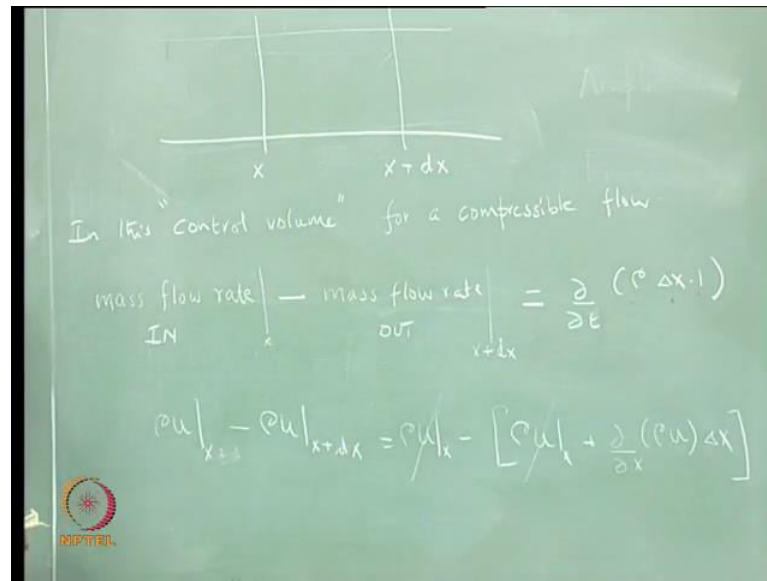 x x + dx
In this "control volume" for a compressible flow
mass flow rate| − mass flow rate| = ∂/∂t (ρ Δx·1)
IN x OUT x+dx
ρu|x − ρu|x+dx = ρu|x − [ρu|x + ∂/∂x (ρu) Δx]
NPTEL